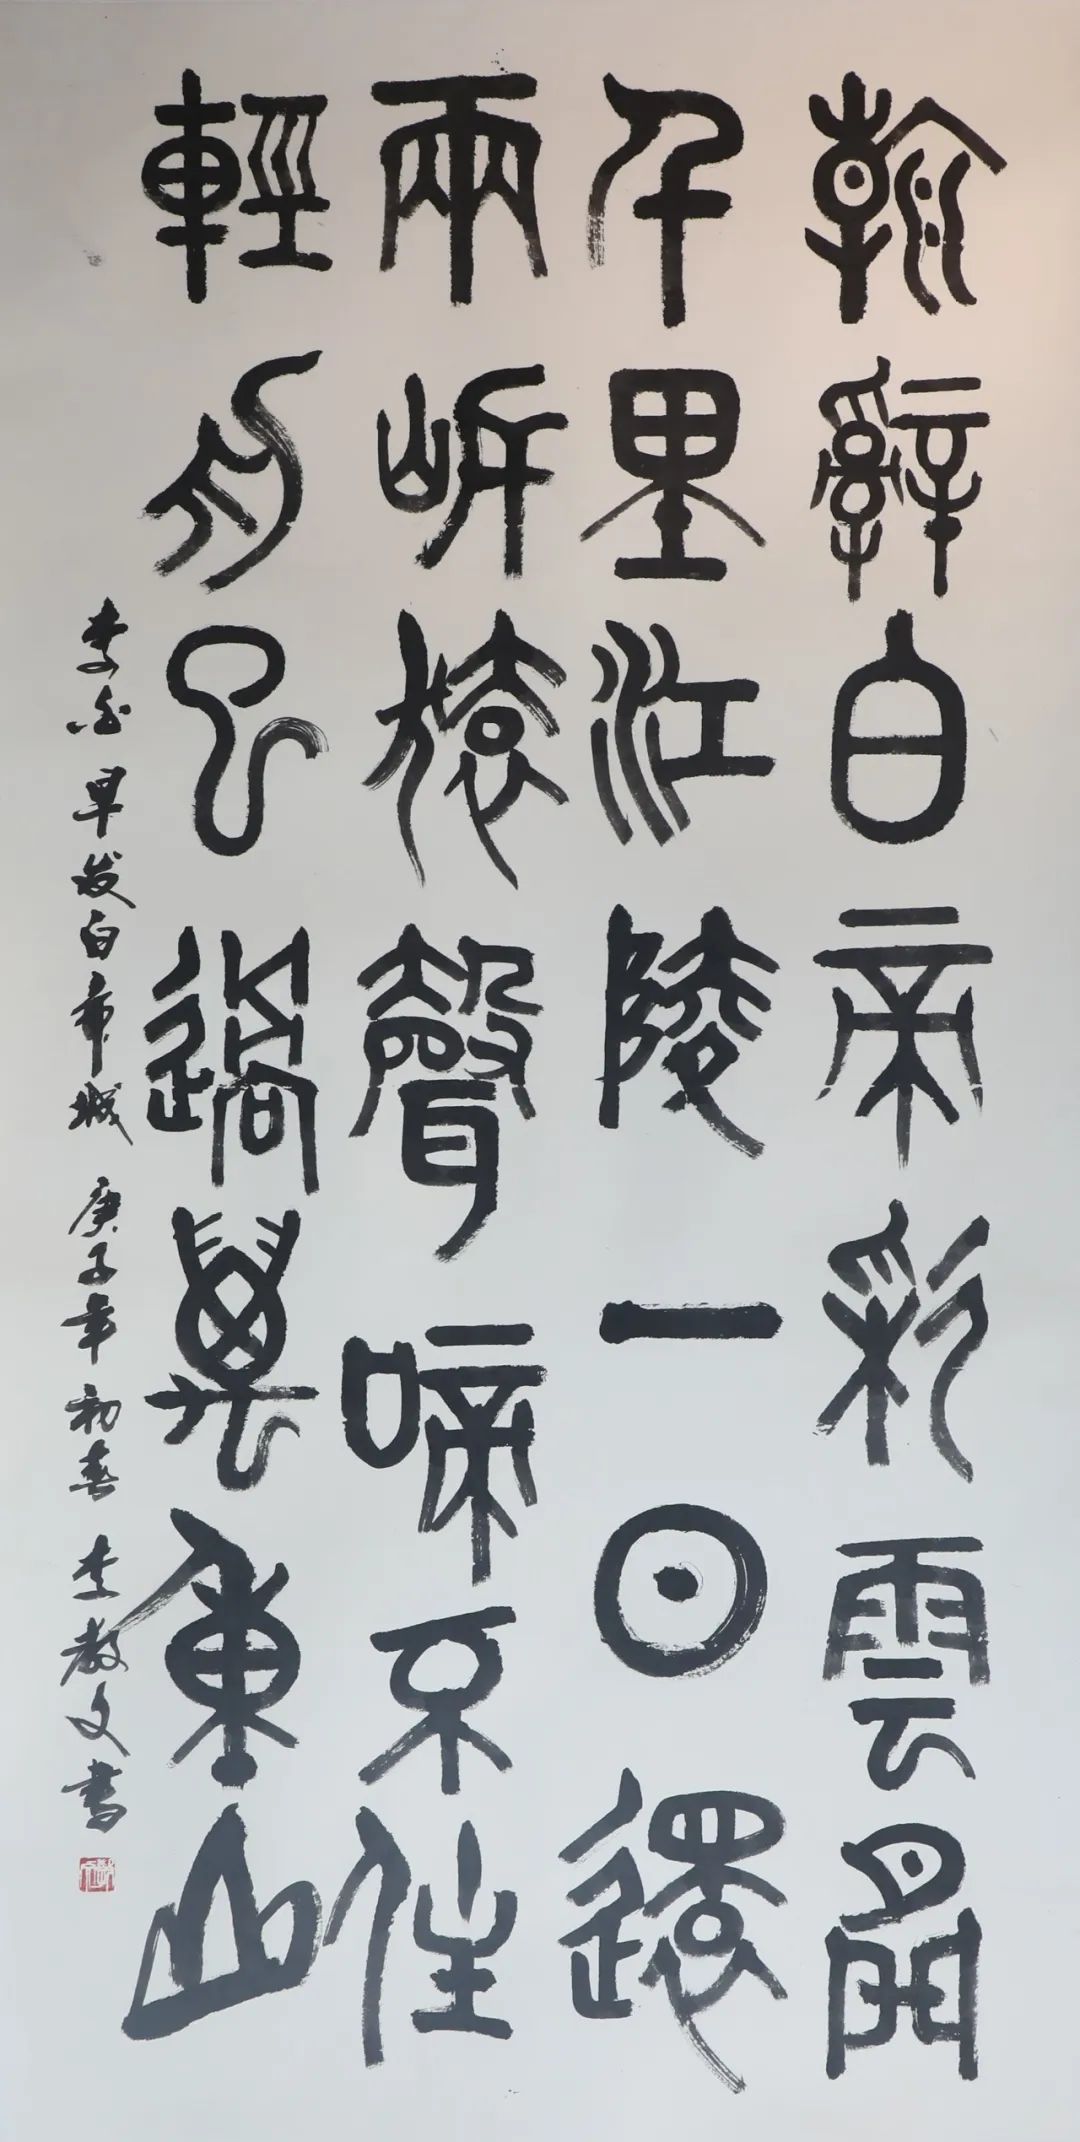 朝辭白帝彩雲間
千里江陵一日還
兩岸猿聲啼不住
輕舟已過萬重山
李白早发白帝城 庚子年初春 李教文書